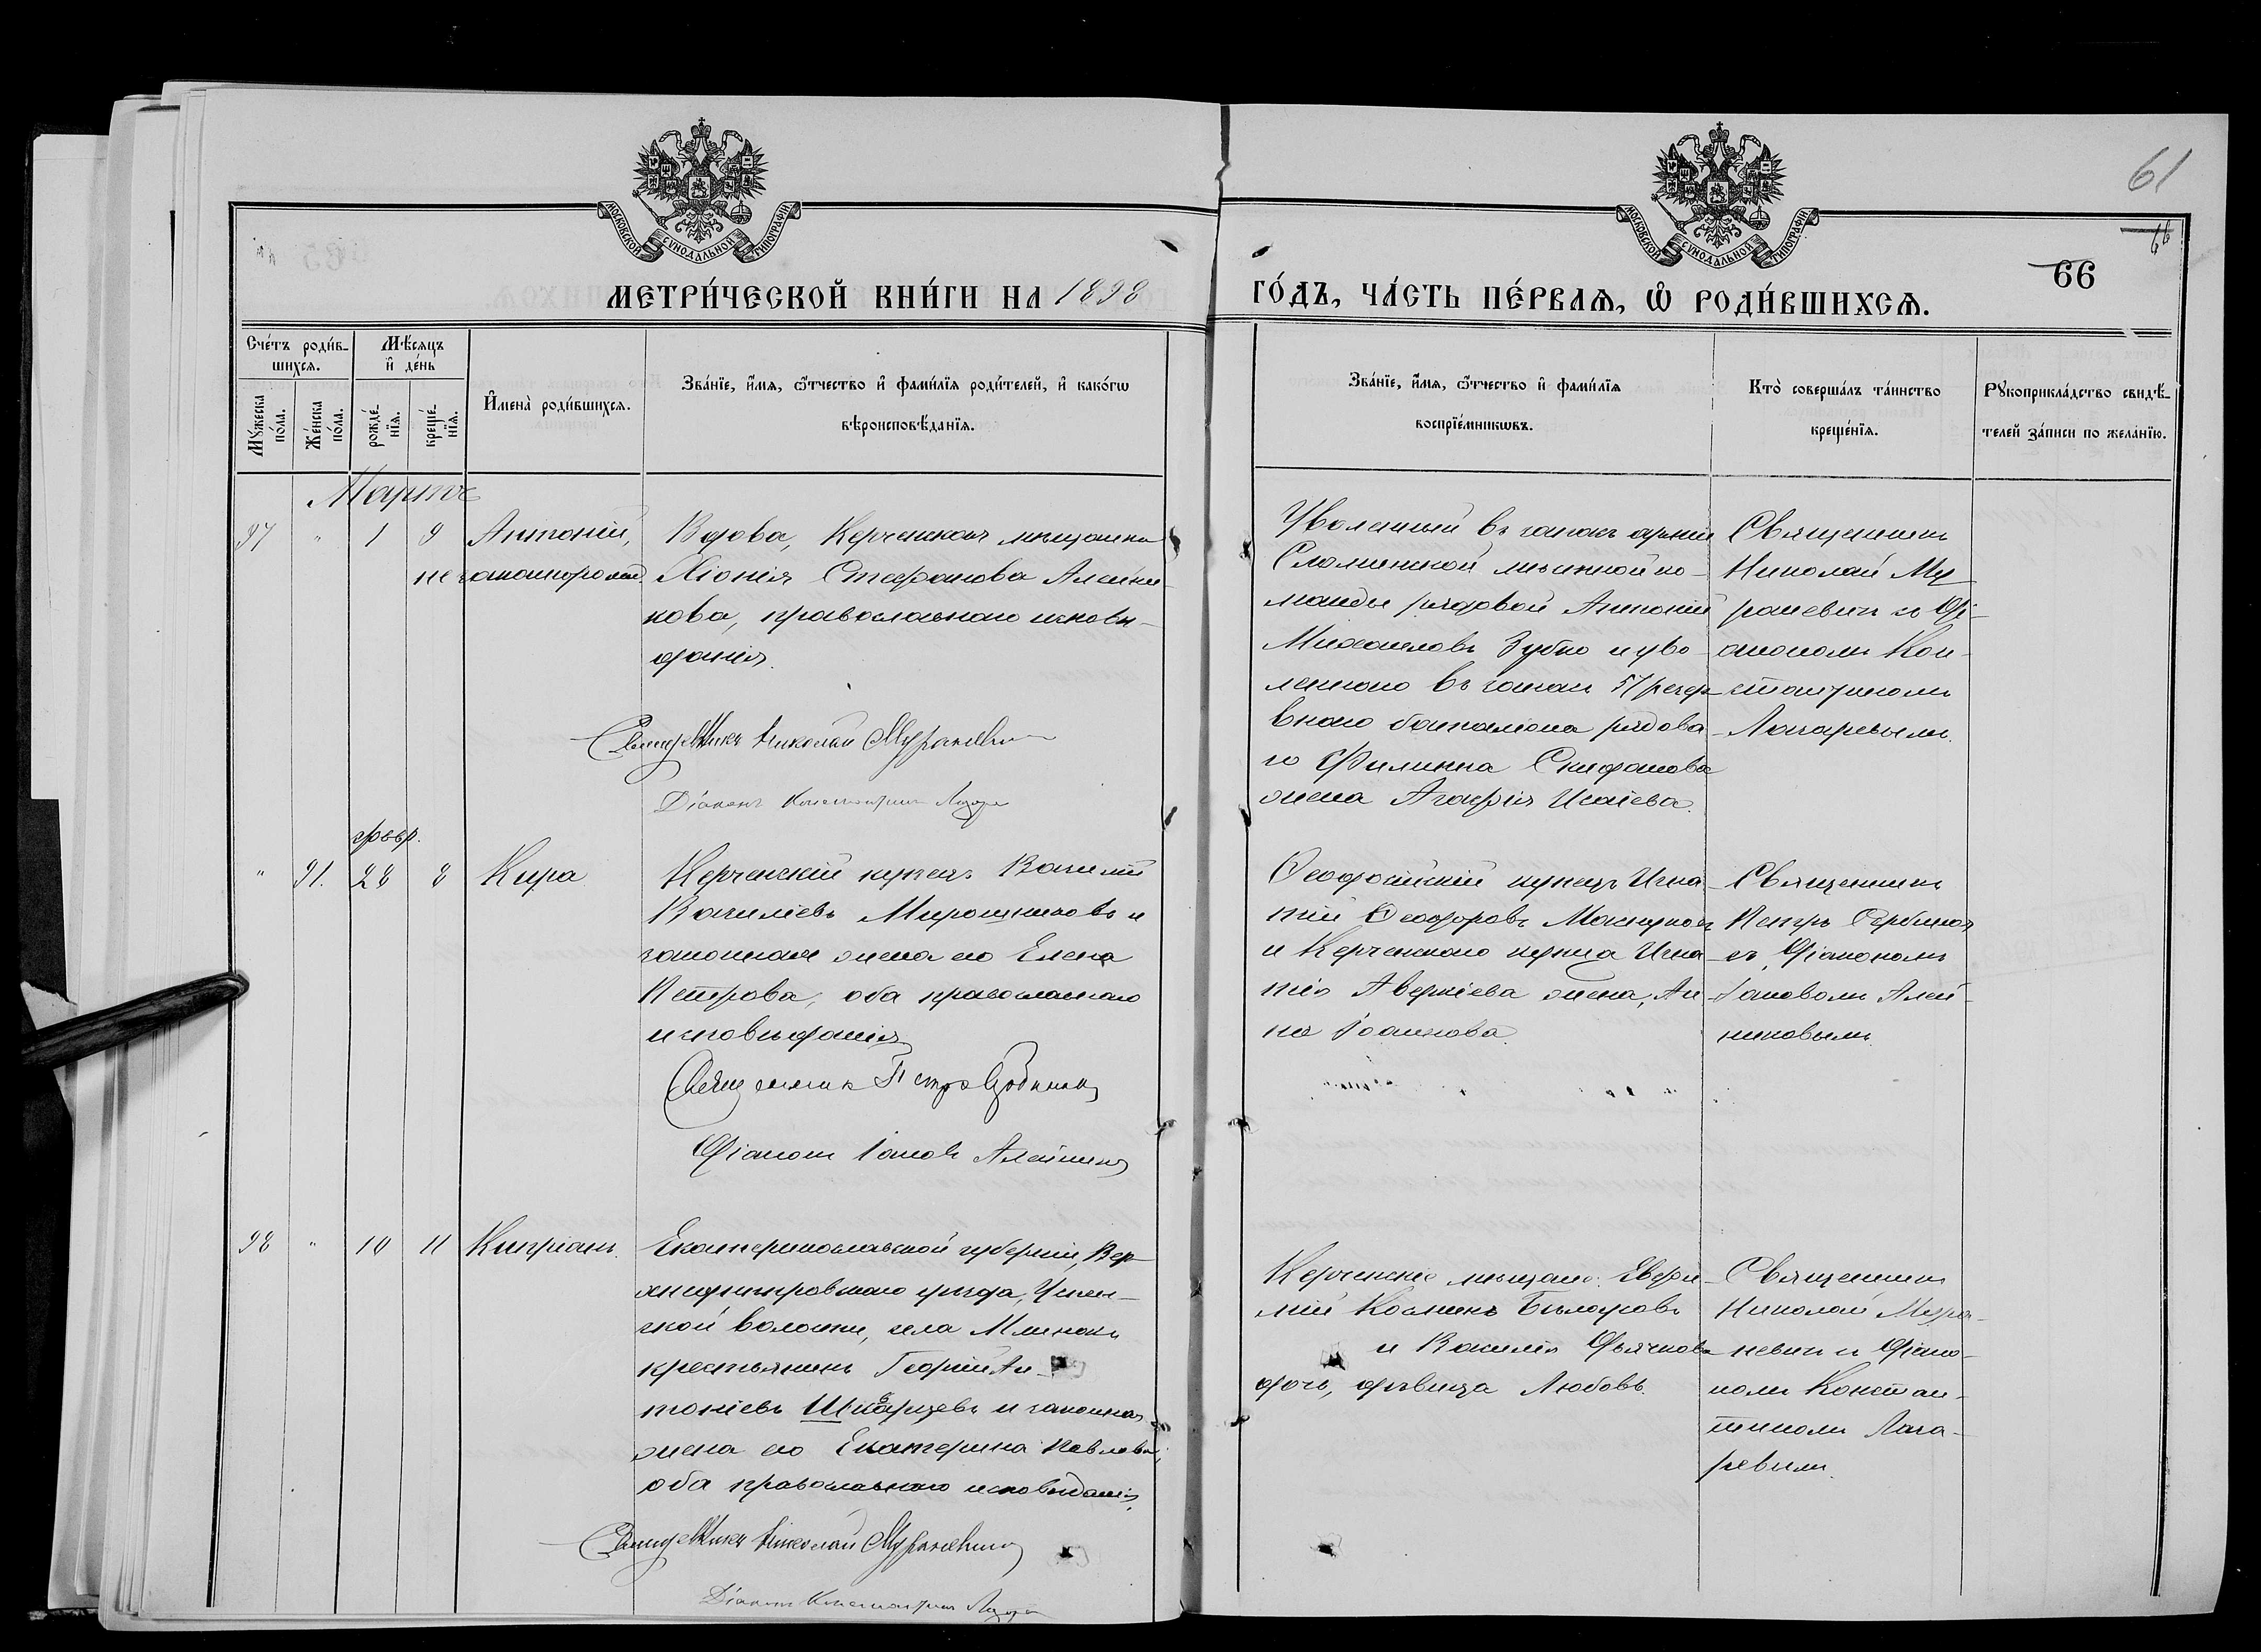 61
66
66
МОСКОВСКОЙ СѴНОДАЛЬНОЙ ТИПОГРАФІИ
МОСКОВСКОЙ СѴНОДАЛЬНОЙ ТИПОГРАФІИ
МЕТРИ́ЧЕСКОЙ КНИ́ГИ НА 1898
ГО́ДЪ, ЧА́СТЬ ПЕ́РВАѦ, Ѡ҆ РОДИ́ВШИХСѦ.
Сче́тъ роди́в-
шихсѧ.
Мꙋ́жеска по́ла.
Же́нска по́ла.
Мѣ́сѧцъ
и҆ де́нь
рожде́-
нїѧ.
креще́-
нїѧ.
И҆мена̀ роди́вшихсѧ.
Зва́нїе, и҆́мѧ, ѻ҆́тчество и҆ фами́лїѧ роди́телей, и҆ како́гѡ
вѣроисповѣ́данїѧ.
Зва́нїе, и҆́мѧ, ѻ҆́тчество и҆ фами́лїѧ
воспрїе́мникѡвъ.
Кто̀ соверша́лъ та́инство
креще́нїѧ.
Рꙋкоприкла́дство свидѣ́-
телей за́писи по жела́нїю.
Мартъ
97 " 1 9 Антоній,
незаконнорожд.
Вдова, Керченская мѣщанка
Хіонія Стефанова Алейни-
кова, православнаго исповѣ-
данія.
Священникъ Николай Мураневичъ
Діаконъ Константинъ Лазаревъ
Уволенный въ запасъ арміи
команды рядовой Антоній
Михаиловъ Зубко и уво-
леннаго въ запасъ 57 резер-
внаго баталіона рядова-
го Филиппа
жена Агафія Исаіева.
Священникъ
Николай Му-
раневичъ съ Ді-
акономъ Кон-
стантиномъ
Лазаревымъ.
февр.
" 91. 28 8 Кира
Керченскій купецъ Василій
Василіевъ Мирошниковъ и
законная жена его Елена
Петрова, оба православнаго
исповѣданія
Священникъ Петръ Сербиновъ
Діаконъ Іаковъ Алейниковъ
Ѳеодосійскій купецъ Игна-
тій Ѳеодоровъ
и Керченскаго купца Игна-
тія Аверкіева жена, Ан-
на Іоаннова
Священникъ
Петръ Сербиновъ
съ Діакономъ
Іаковомъ Алей-
никовымъ.
98 " 10 11 Кипріанъ.
Екатеринославской губерніи, Вер-
хнеднѣпровскаго уѣзда, Успен-
ской волости, села
крестьянинъ Георгій Ан-
тоніевъ Шкарупевъ и законная
жена его Екатерина Павлова,
оба православнаго исповѣданія.
Священникъ Николай Мураневичъ
Діаконъ Константинъ Лазаревъ
Керченскіе мѣщане: Евфи-
мій Косминъ
и Василія Дьячкова
дочь, дѣвица Любовь.
Священникъ
Николай Мура-
невичъ съ Діако-
номъ Констан-
тиномъ Лаза-
ревымъ.